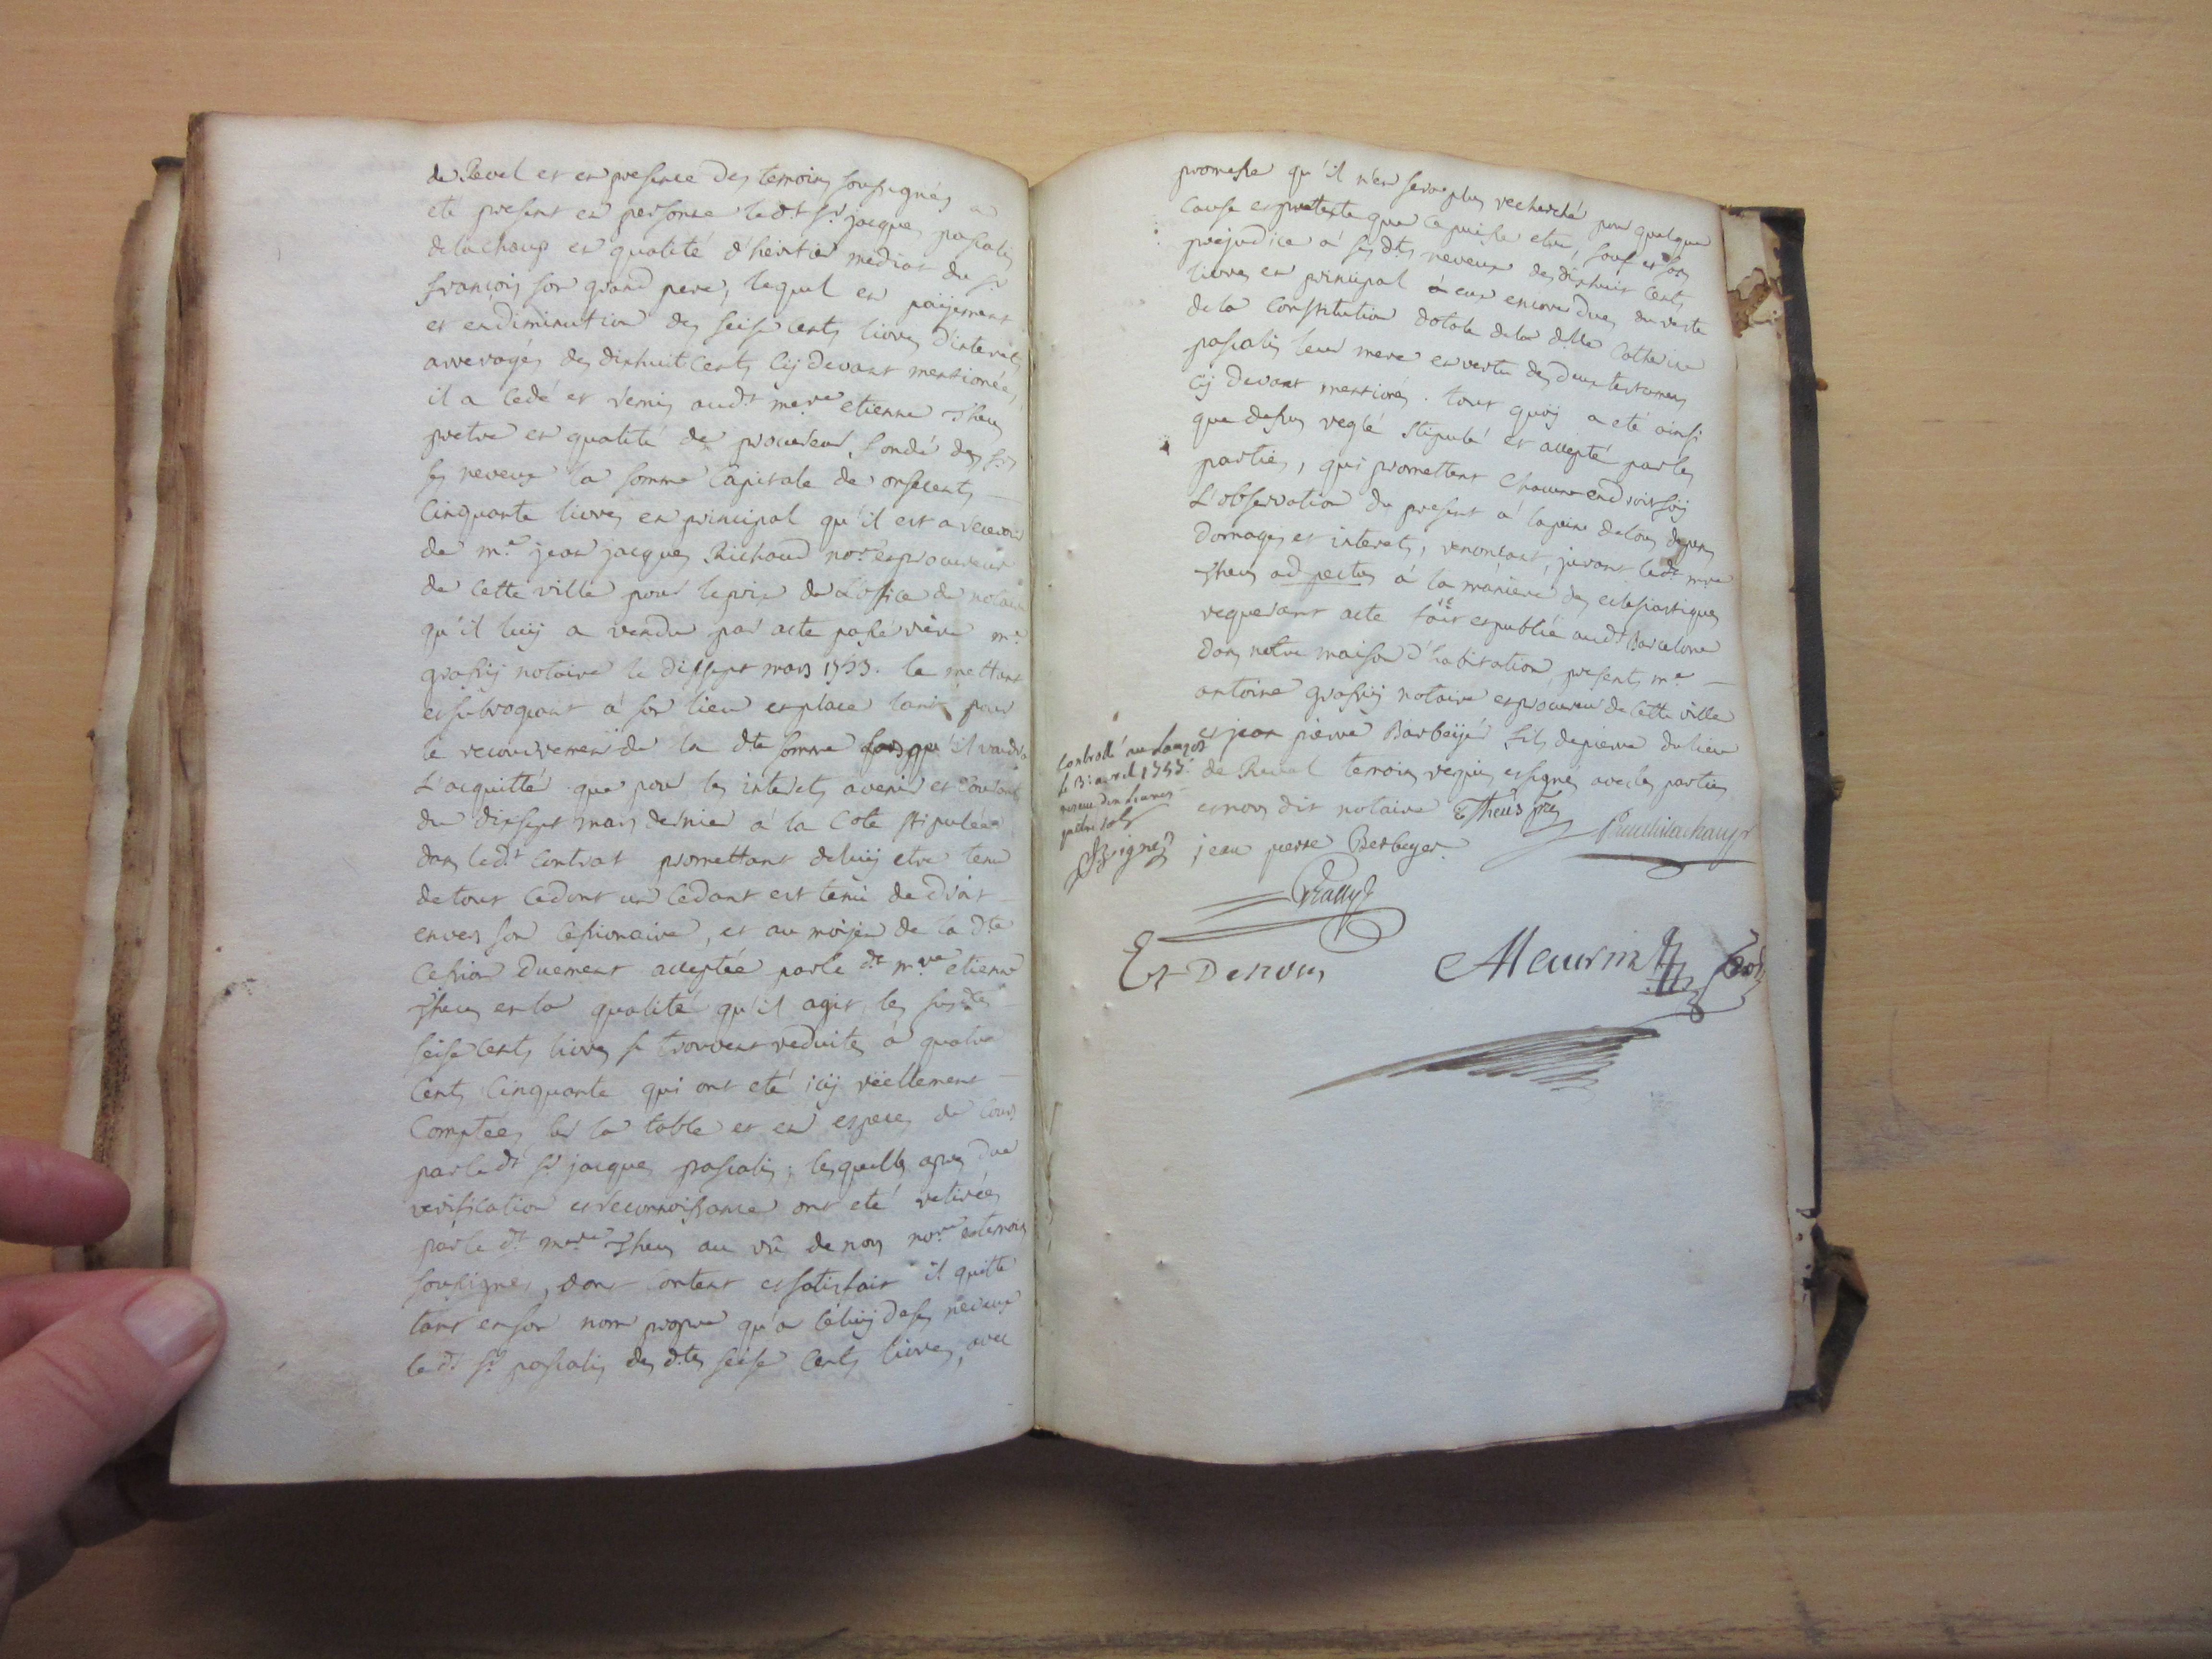 de Revel et en presence des temoins soussignés a
eté present en personne led.t s.r jacques pascalis
de la chaup en qualité d'heritier mediat du s.r
françois son grand pere, lequel en paijement
et en diminution des seise cents livres d'interets
arreragés des dixhuit cents cij devant mentionées,
il a cedé et remis aud.t m.re etienne Theus
pretre en qualité de procureur fondé des s.rs
ses neveux la somme capitale de onsecents
cinquante livres en principal qu'il est a recevoir
de m.e jean jacques Richaud no.re et procureur
de cette ville pour le prix de L'office de notaire
qu'il luij a vendu par acte passé rière m.e
grassij notaire le dixsept mars 1753. le mettant
et subrogeant à son lieu et place tant pour
le recouvrement de la d.te somme lorsqu'il voudra
L'acquitté que pour les interets avenir et courants
du dixsept mars dernier à la cote stipulée
dans led.t contrat promettant de luij etre tenu
de tout ce dont un cedant est tenu de droit
envers son cessionaire, et au moijen de la d.te
cession duement acceptée par le d.t m.re etienne
Theus en la qualité qu'il agit, les susd.tes
seise cents livres se trouvent reduites à quatre
cents cinquante qui ont eté icij réellement
comptées sur la table et en especes de cours
par led.t s.r jacques pascalis; lesquelles apres due
verification et reconnoissance ont eté retirées
par le d.t m.re Theus au vû de nous no.re et temoins
soussignes, dont content et satisfait il quitte
tant en son nom propre qu'a celuij de ses neveux
le d.t s.r pascalis des d.tes seise cents livres, avec
promesse qu'il n'en sera plus recherché pour quelque
cause et pretexte que ce puisse etre, sauf et sans
prejudice à ses d.ts neveux des dixhuit cents
livres en principal à eux encore dues du reste
de la constitution dotale de la d.lle Catherine
pascalis leur mere en vertu des deux testamens
cij devant mentionés. tout quoij a eté ainsi
que dessus reglé stipulé et accepté par les
parties, qui promettent chacune en droit soij
L'observation du present à la peine de tous depens
domages et interets, renonçant, jurant led.t m.re
Theus ad pectus à la maniere des eclesiastiques
requerant acte fait et publié aud.t Barcelone
dans notre maison d'habitation, presents m.e
antoine grassij notaire et procureur de cette ville
et jean pierre Barbeijé fils de pierre du lieu
de Revel temoins requis et signés avec les parties
et nous dit notaire E Theus ptre
Controllé au Lauzet
le 3: avril 1753.
quatre sols
Signé
jean pierre Berbeyer
Grassy
Et De nous Meurin